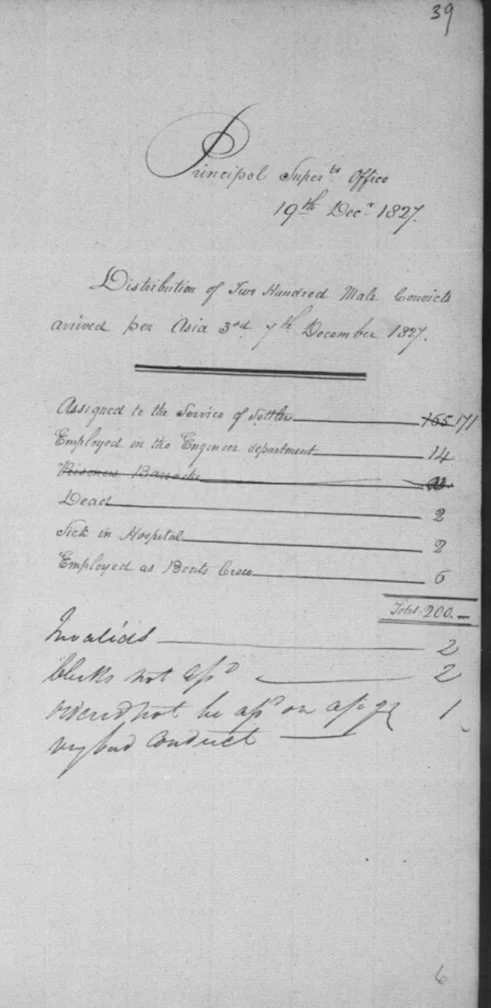 39
Principal Super.ts Office
19th Decr 1827.
Distribution of Two Hundred Male Convicts
arrived per Asia 3rd 7th December 1827.
Assigned to the Service of Settlers 165 171
Employed in the Engineer department 14
Prisoners Barracks
Dead 2
Sick in Hospital 2
Employed as Boats Crew 6
Total 200.
Invalids 2
Clerks not assd 2
not be on 1
very bad conduct
6